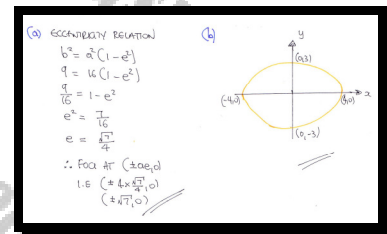 (a) ECCENTRICITY RELATION
b² = a²(1-e²)
9 = 16(1-e²)
9/16 = 1-e²
e² = 7/16
e = √7/4
∴ FOCI AT (±ae,0)
I.E (±4×√7/4,0)
(±√7,0)
(b)
y
(0,3)
(-4,0)
(4,0)
x
(0,-3)